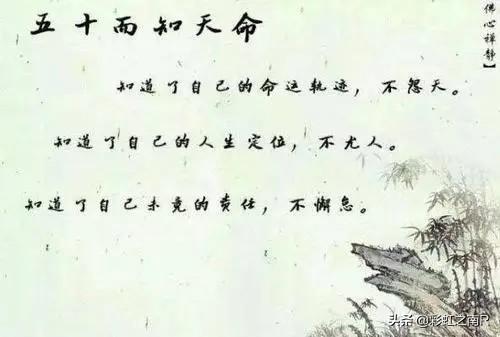 五十而知天命
佛心禅静】
知道了自己的命运轨迹，不怨天。
知道了自己的人生定位，不尤人。
知道了自己未竟的责任，不懈怠。
头条@彩虹之南R